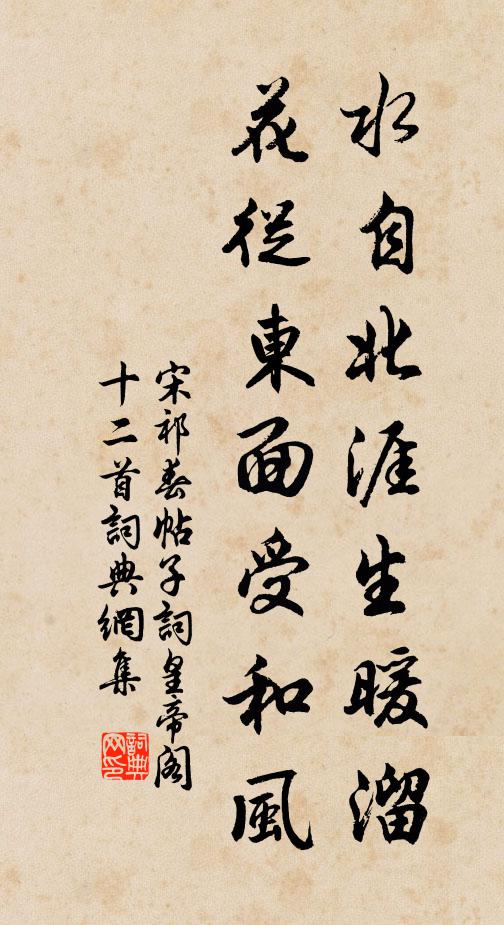 水自北涯生暖溜
花從東面受和風
宋祁春帖子詞皇帝閣
十二首詞典網集
詞典網印